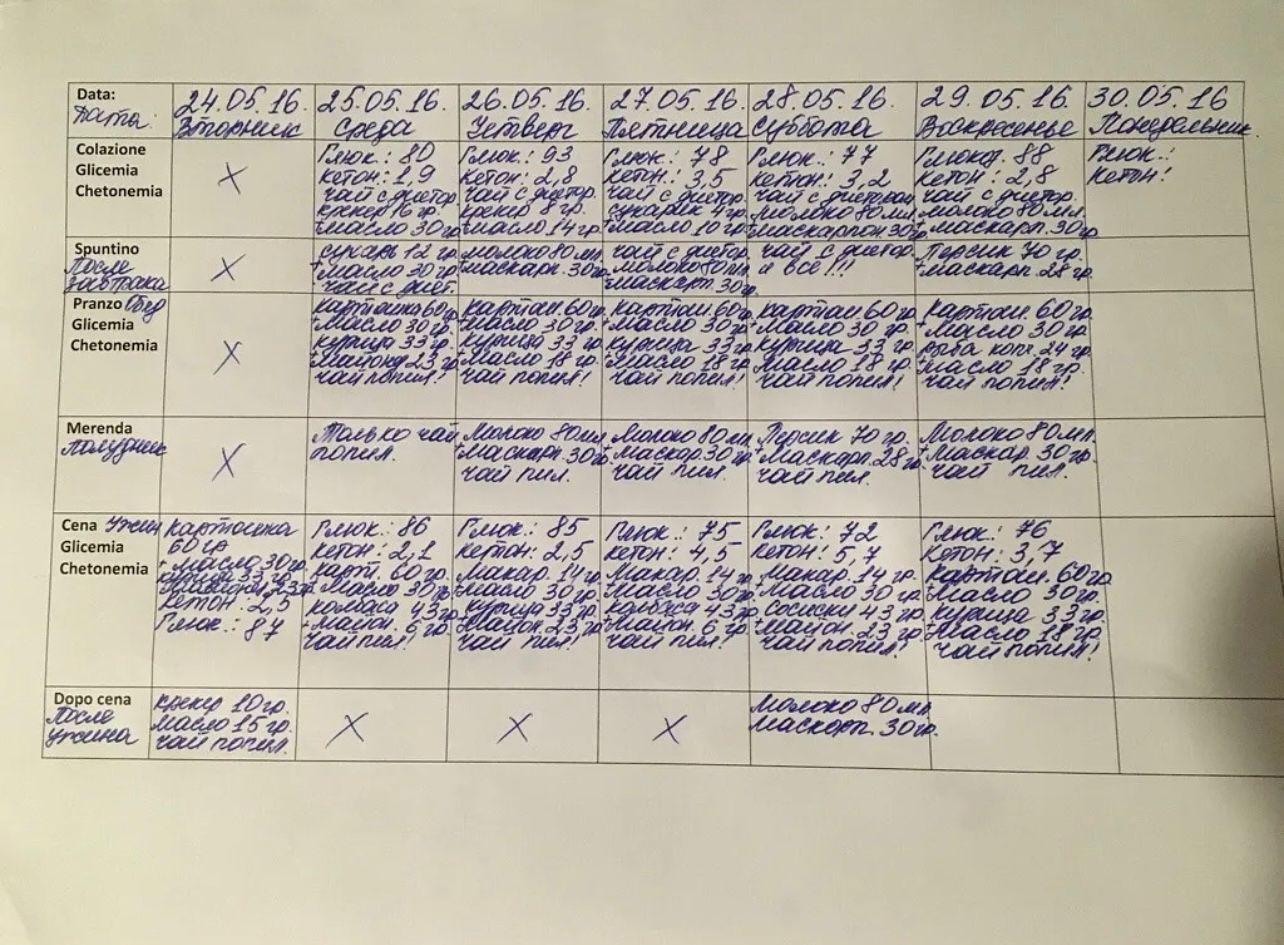 Data:
Дата:
24.05.16.
Вторник
25.05.16.
Среда
26.05.16.
Четверг
27.05.16.
Пятница
28.05.16.
Суббота
29.05.16.
Воскресенье
30.05.16
Понедельник.
Colazione
Glicemia
Chetonemia
X
Глюк.: 80
кетон: 1,9
чай с диетор.
крекер 16 гр.
+масло 30гр
Глюк.: 93
кетон: 2,8
чай с диетор.
крекер 8 гр.
+масло 14гр
Глюк.: 78
кетон.: 3,5
чай с диетор.
сухарик 4гр.
+масло 10гр
Глюк.: 77
кетон: 3,2
чай с диетором
молоко 80мл.
+маскарпон 30гр
88
кетон: 2,8
чай с диетор.
молоко 80мл.
+маскарп. 30гр
Глюк.:
кетон:
Spuntino
После
завтрака
X
сухарь 12 гр
+масло 30гр
чай с диет.
молоко 80мл
+маскарп. 30гр
чай с диетор.
молоко 80мл
+маскарп. 30гр.
чай с диетор.
и всё!!!
Персик 70 гр.
+маскарп. 28гр.
Pranzo Обед
Glicemia
Chetonemia
X
картошка 60гр
+масло 30гр.
курица 33гр.
+Майонез 23гр
чай попил!
картош. 60гр
+масло 30гр.
курица 33гр
+масло 18гр
чай попил!
картош. 60гр
+масло 30гр
курица 33гр
+масло 18гр
чай попил!
картош 60гр
+масло 30 гр.
курица 33 гр.
масло 18 гр
чай попил!
картош. 60гр
+масло 30 гр
рыба коп. 24 гр
+масло 18 гр.
чай попил!
Merenda
Полудник
X
Только чай
попил.
Молоко 80мл
+маскарп. 30гр.
чай пил.
Молоко 80мл
+маскар 30гр
чай пил.
Персик 70 гр.
+маскарп. 28гр
чай пил.
Молоко 80мл.
+маскар. 30гр.
чай пил.
Cena Ужин
Glicemia
Chetonemia
картошка
60 гр
+масло 30гр
курица 33 гр.
23гр
кетон: 2,5
Глюк.: 87
Глюк.: 86
кетон: 2,1
карт. 60гр.
+масло 30гр
колбаса 43гр
+майон. 6 гр.
чай пил!
Глюк.: 85
кетон: 2,5
Макар. 14гр
+масло 30гр.
курица 33гр.
+майон. 23гр
чай пил!
Глюк.: 75
кетон: 4,5
Макар. 14гр
+масло 30гр
колбаса 43гр
+майон. 6 гр
чай пил!
Глюк: 72
кетон: 5,7
Макар. 14 гр.
+масло 30 гр
сосиски 43гр
+майон. 23 гр
чай попил!
Глюк: 76
кетон: 3,7
картош. 60гр
+масло 30гр.
курица 33гр
+масло 18гр
чай попил!
Dopo cena
После
ужина
крекер 10гр.
масло 15 гр.
чай попил.
X
X
X
Молоко 80мл
Маскарп. 30гр.